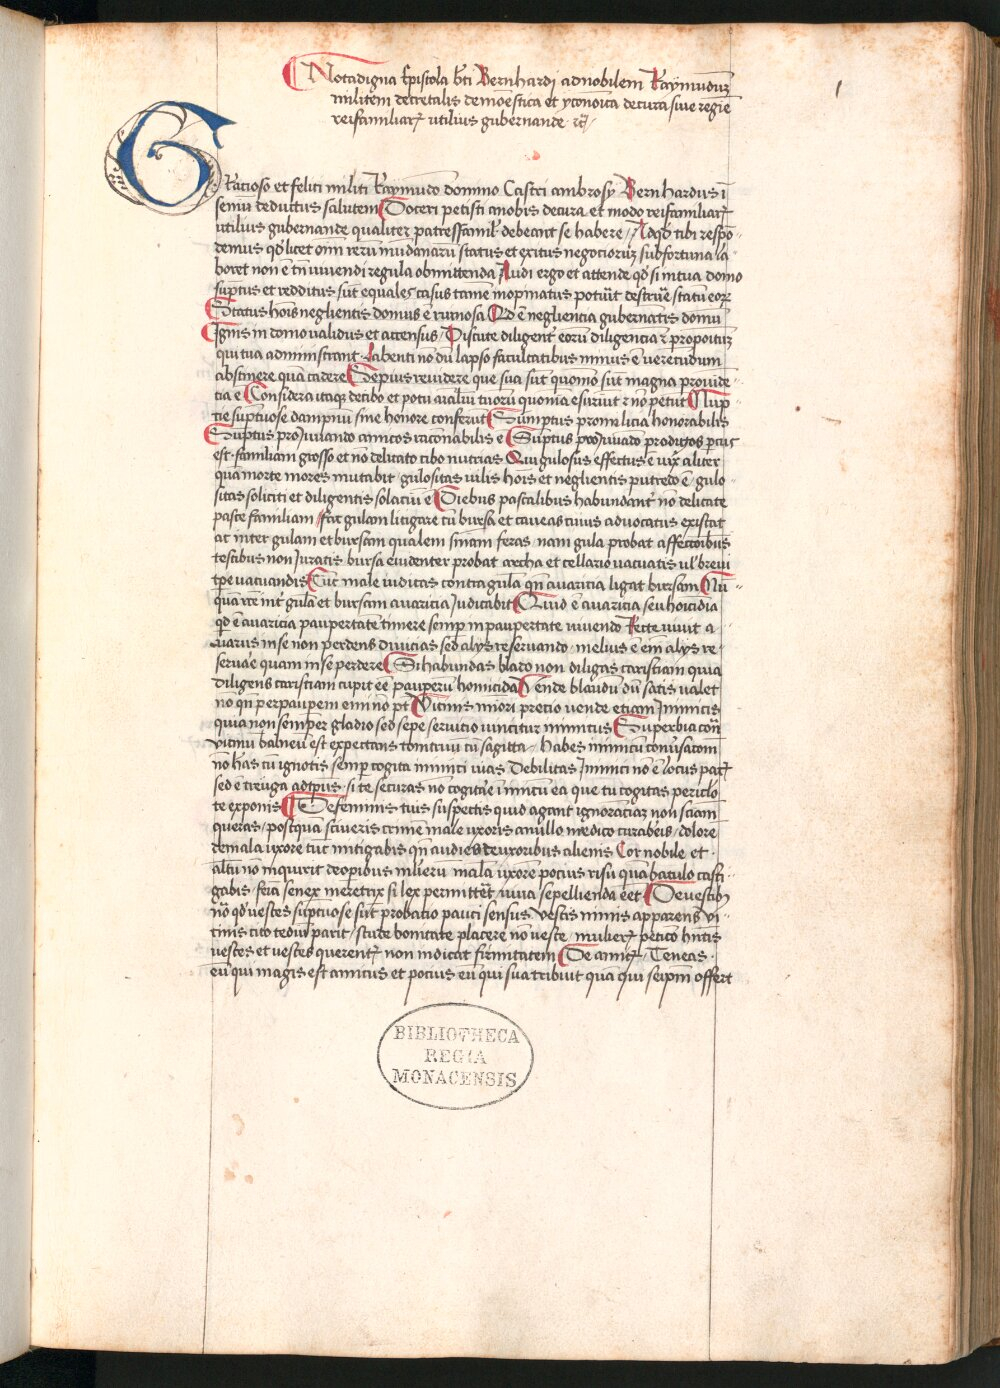 Notadigna Epistola bti Bernhardi adnobilem Raymundū
militem decretalis demoestica et yconoica decura siue regie
reifamiliarꝭ utilius gubernande ꝛc̄
1
Gracioso et felici militi Raymūdo domino Castri ambrosÿ Bernhardus ī
seniū deductus salutem Doceri petisti anobis decura et modo reifamiliarꝭ
utilius gubernande qualiter patresfamil debeant se habere Adqd tibi respō
demus qd licet oīm rerū mūdanarū status et exitus negociorū subfortuna la
boret non ē tn̄ viuendi regula obmittenda Audi ergo et attende qd si intua domo
sūptus et redditus sūt equales casus tame inopinatus poterit destruē statū eoꝝ
Status hoīs neglientis domus ē ruinosa Qd ē neglientia gubernātis domū
Ignis in domo validus et accensus Discute diligent eorū diligenciā ꝛ propoitū
qui tua administrant Labenti nō dū lapso facultatibus minus ē verecūdum
abstinere quā cadere Sepius reuidere que sua sūt quomō sūt magna prouidē
cia ē Considera itaque decibo et potu aīaliū tuorū quoniā esuriūt ꝛ nō petūt Nup
cie sūptuose dampnū sine honore conferūt Sumptus promilicia honorabilis
Sūptus pro iuuando amicos racionabilis ē Sūptus pro iuuādo prodigos pditꝰ
est familiam grosso et nō delicato cibo nutrias Qui gulosus effectus ē vix aliter
quā morte mores mutabit gulositas vilis hoīs et neglientis putredo ē gulo
sitas soliciti et diligentis solaciū ē Diebus pascalibus habundant nō delicate
pasce familiam Fac gulam litigare cū bursa et caueas cuius aduocatus existat
at inter gulam et bursam qualem sniam feras nam gula probat affectibus
testibus non Juratis bursa euidenter probat archa et cellario vacuatis ul breui
tpe vacuandis Tūc male iudicas contra gulā qn auaricia ligat bursam Nū
quā rcte int gulā et bursam auaricia Judicabit Quid ē auaricia seu hoīcidia
qd ē auaricia paupertatē timere semp in paupertate viuendo Recte viuit a
uarus in se non perdens diuicias sed alÿs reseruando melius ē em̄ alÿs re
seruāe quam in se perdere Si habundas blado non diligas caristiam quia
diligens caristiam cupit eē pauperū homicida Vende blaudū dū satis valet
nō qn per paupem emi nō pt Vicinis miori precio vende etiam Jnimicis
quia non semper gladio sed sepe seruicio vincitur inimicus Superbia conͣ
vicinū balneū est expectans tonitruū cū sagitta Habes inimicū conuersacōnē
nō has cū ignotis semp cogita inimici vias Debilitas Jnimici nō ē locus pacꝭ
sed ē treuga adtpus si te securas nō cogitāe īimicū ea que tu cogitas periclo
te exponis De feminis tuis suspectis quid agant ignoranciaꝫ non sciam
queras postquā sciueris crimē male vxoris a nullo medico curaberis dolorē
demala vxore tūc mitigabis qn audies deuxoribus alienis Cor nobile et
altū nō inquirit deopibus mlierū malā vxorē pocius risu quā baculo casti
gabis feīa senex meretrix si lex permittēt viua sepellienda eēt Devestibꝫ
nō qd vestes sūptuose sūt probatio pauci sensus Vestis nimis apparens vi
cinis cito tediū parit stude bonitate placere nō veste mulierꝭ peticō hntis
vestes et vestes querentꝭ non indicat firmitatem De amicꝭ Teneas
eū qui magis est amicus et pocius eū qui sua tribuit quā qui seipm offert
BIBLIOTHECA
REGIA
MONACENSIS